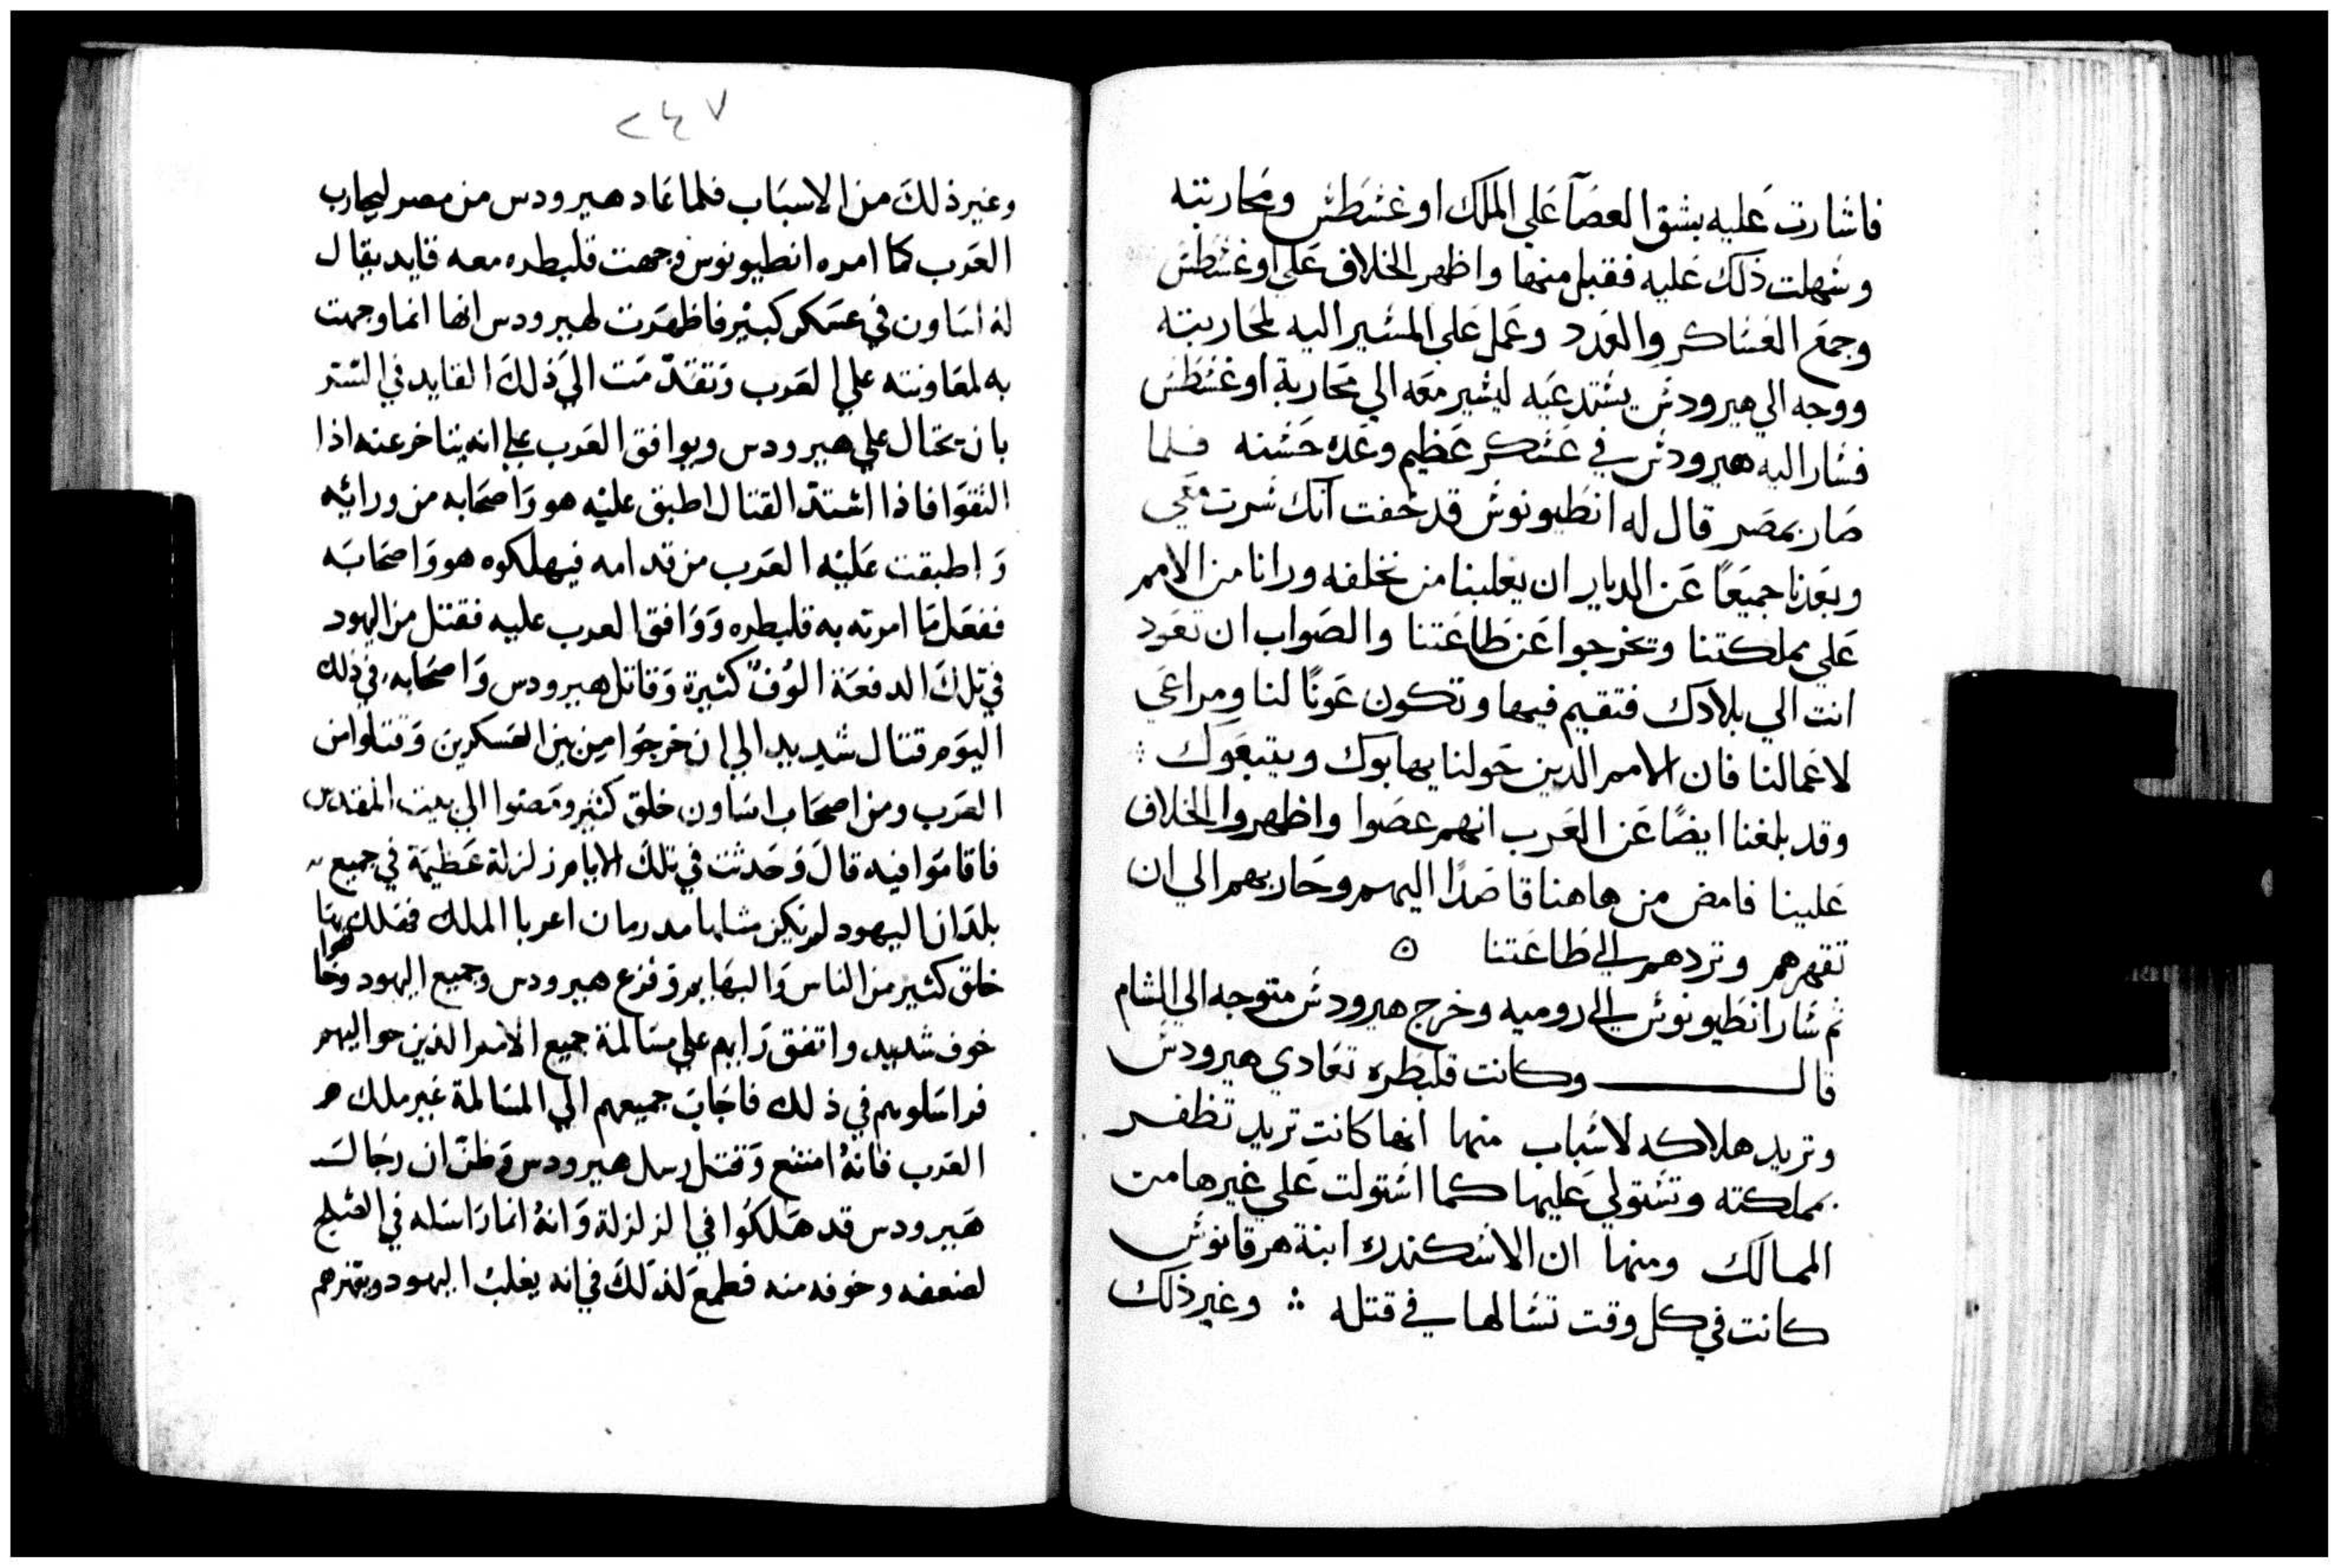 فاشارت عليه بشق العصآ علي الملك اوغشطش ومحاربته
وشهلت ذلك عليه فقبل منها واظهر الخلاف علي اوغشطش
وجمع العشاكر والعدد وعمل علي المشير اليه لمحاربته
ووجه الي هيرودش يشتدعيه ليشير معه الي محاربة اوغشطش
فشار اليه هيرودش في عشكر عظيم وعده حشنه فلما
صار بمصر قال له انطيونوش قد خفت انك شرت معي
وبعدنا جميعًا عن الديار ان يغلبنا من نخلفه ورانا من الامم
علي مملكتنا وتخرجوا عن طاعتنا والصواب ان تعود
انت الي بلادك فتقيم فيها وتكون عونًا لنا ومراعي
لاعمالنا فان الامم الدين حولنا يهابوك ويتبعوك ⁘
وقد بلغنا ايضًا عن العرب انهم عصوا واظهروا الخلاف
علينا فامض من هاهنا قاصدًا اليهم وحاربهم الي ان
تقهرهم وتردهم الي طاعتنا ۞
ثم شار انطيونوش الي روميه وخرج هيرودش متوجه الي الشام
قال وكانت قلبطره تعادي هيرودش
وتريد هلاكه لاشباب منها انها كانت تريد تظفر
بمملكته وتشتولي عليها كما اشتولت علي غيرها من
الممالك ومنها ان الاشكندره ابنة هرقانوش
كانت في كل وقت تشالها في قتله ⁘ وغير ذلك
٢٤٧
وغير ذلك من الاسباب فلما عاد هيرودس من مصر ليحارب
العرب كما امره انطيونوس وجهت قلبطره معه قايد يقال
له اساون في عسكر كبير فاظهرت لهيرودس انها انما وجهت
به لمعاونته علي العرب وتقدّمت الي ذلك القايد في الستر
بان يحتال علي هيرودس ويوافق العرب علي انه يتاخر عنه اذا
التقوا فاذا اشتدّ القتال اطبق عليه هو واصحابه من ورائيه
واطبقت عليه العرب من قدامه فيهلكوه هو واصحابه
ففعل ما امرته به قلبطره ووافق العرب عليه فقتل من اليهود
في تلك الدفعة الوف كثيرة وقاتل هيرودس واصحابه في ذلك
اليوم قتال شديد الي ان خرجوا من بين العسكرين وقتلوا من
العرب ومن اصحاب اساون خلق كثير ومضوا الي بيت المقدس
فاقاموا فيه قال وحدثت في تلك الايام زلزلة عظيمة في جميع
بلدان اليهود لم يكن مثلها مد زمان اعربا الملك فهلك بها
خلق كثير من الناس والبهايم وفزع هيرودس وجميع اليهود وخافوا
خوف شديد واتفق رايهم علي مسالمة جميع الامم الذين حواليهم
فراسلوهم في ذلك فاجاب جميعهم الي المسالمة غير ملك
العرب فانهُ امتنع وقتل رسل هيرودس وظنّ ان رجال
هيرودس قد هلكوا في الزلزلة وانهُ انما راسله في الصلح
لضعفه وخوفه منه فطمع لذلك في انه يغلب اليهود ويقهرهم